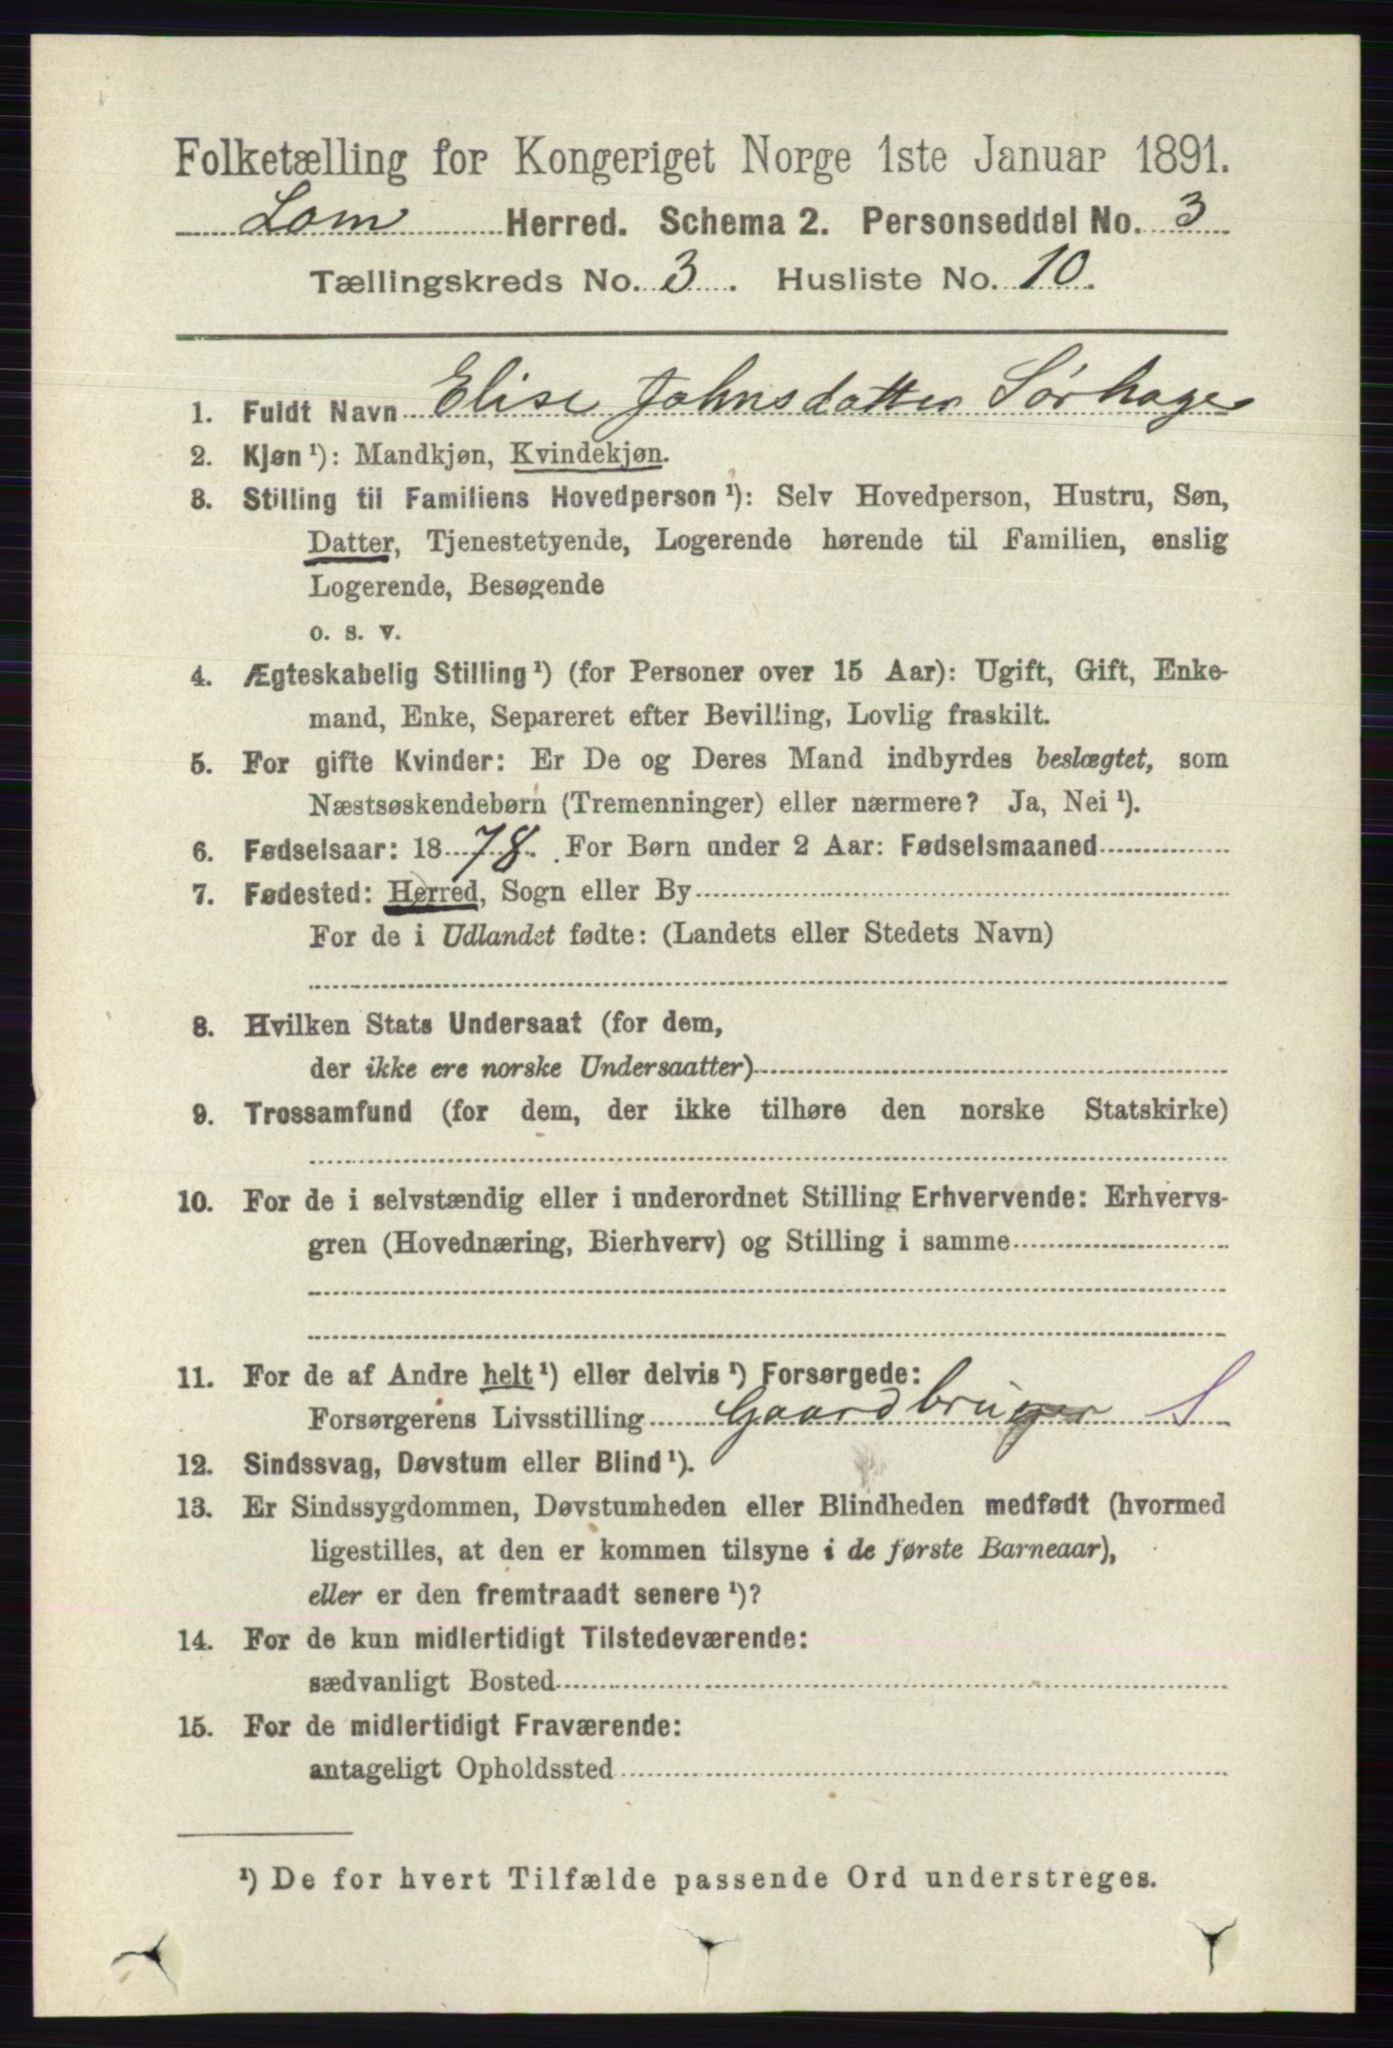 Folketælling for Kongeriget Norge 1ste Januar 1891.
Lom Herred. Schema 2. Personseddel No. 3
Tællingskreds No. 3. Husliste No. 10.
1. Fuldt Navn Elise Johnsdatter Sørhage
2. Kjøn ¹): Mandkjøn, Kvindekjøn.
3. Stilling til Familiens Hovedperson ¹): Selv Hovedperson, Hustru, Søn,
Datter, Tjenestetyende, Logerende hørende til Familien, enslig
Logerende, Besøgende
o. s. v.
4. Ægteskabelig Stilling ¹) (for Personer over 15 Aar): Ugift, Gift, Enke-
mand, Enke, Separeret efter Bevilling, Lovlig fraskilt.
5. For gifte Kvinder: Er De og Deres Mand indbyrdes beslægtet, som
Næstsøskendebørn (Tremenninger) eller nærmere? Ja, Nei ¹).
6. Fødselsaar: 1878. For Børn under 2 Aar: Fødselsmaaned
7. Fødested: Herred, Sogn eller By
For de i Udlandet fødte: (Landets eller Stedets Navn)
8. Hvilken Stats Undersaat (for dem,
der ikke ere norske Undersaatter)
9. Trossamfund (for dem, der ikke tilhøre den norske Statskirke)
10. For de i selvstændig eller i underordnet Stilling Erhvervende: Erhvervs-
gren (Hovednæring, Bierhverv) og Stilling i samme
11. For de af Andre helt ¹) eller delvis ¹) Forsørgede:
Forsørgerens Livsstilling Gaardbruger S
12. Sindssvag, Døvstum eller Blind ¹).
13. Er Sindssygdommen, Døvstumheden eller Blindheden medfødt (hvormed
ligestilles, at den er kommen tilsyne i de første Barneaar),
eller er den fremtraadt senere ¹)?
14. For de kun midlertidigt Tilstedeværende:
sædvanligt Bosted
15. For de midlertidigt Fraværende:
antageligt Opholdssted
¹) De for hvert Tilfælde passende Ord understreges.